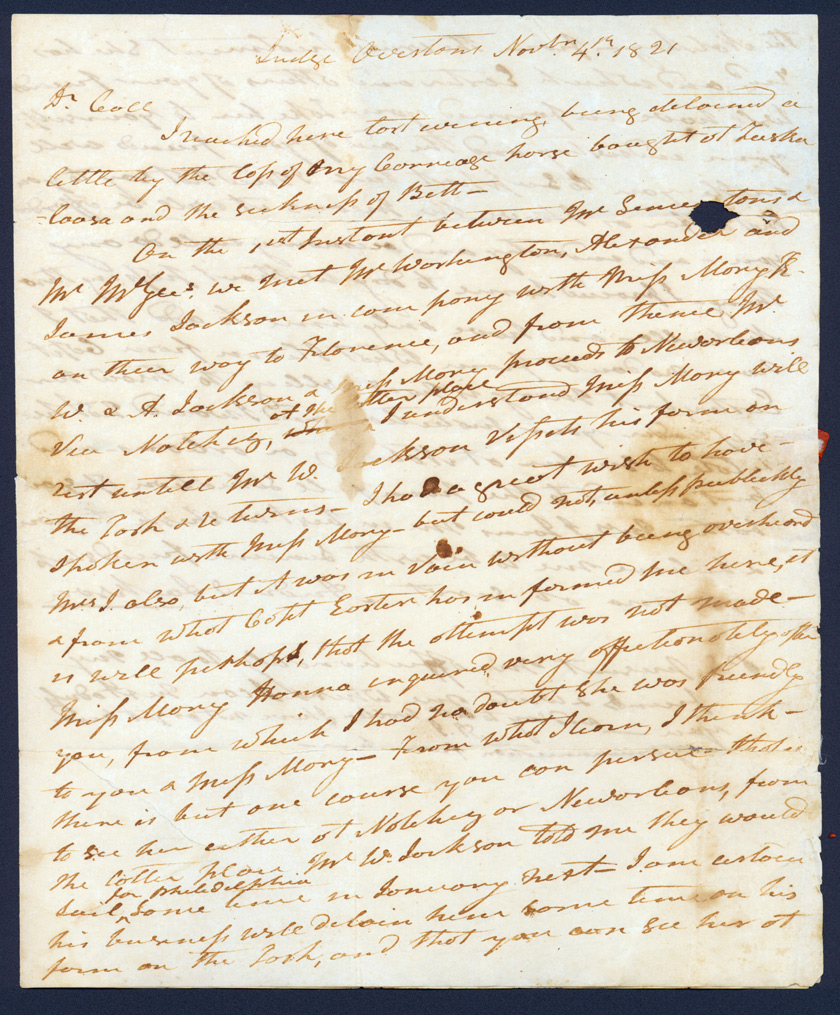 Judge Overtons Novbr 4th 1821
Dr Call
I reached here last evening, being detained a
little by the loss of my Carriage horse bought at Tuska
-loosa and the sickness of Bett—
On the 1st Instant between Mr
Mr McGees, we met Mr Washington, Alexander and
James Jackson in company with Miss Mary K-
on their way to Florence, and from thence Mr
W. & A. Jackson & Miss Mary proceed to Neworleans
Via Notchez, at the latter place I understand Miss Mary will
rest untill Mr W. Jackson Vissits his farm on
the Tosh & returns— I had a great wish to have—
spoken with Miss Mary— but could not, unless publickly
Mrs J. also, but it was in Vain without being overheard
& from what Capt Easter has informed me here, it
is well perhaps, that the attempt was not made—
Miss Mary Hanna inquired very affectionately after
you, from which I had no doubt she was friendly
to you & Miss Mary— From what I learn, I think—
there is but one course you can persue— that is
to see her either at Notchez or Neworleans, from
the latter place Mr W. Jackson told me they would
sail for Philadelphia some time in January next— I am certain
his business will detain him some time on his
farm on the Tosh, and that you can see her at